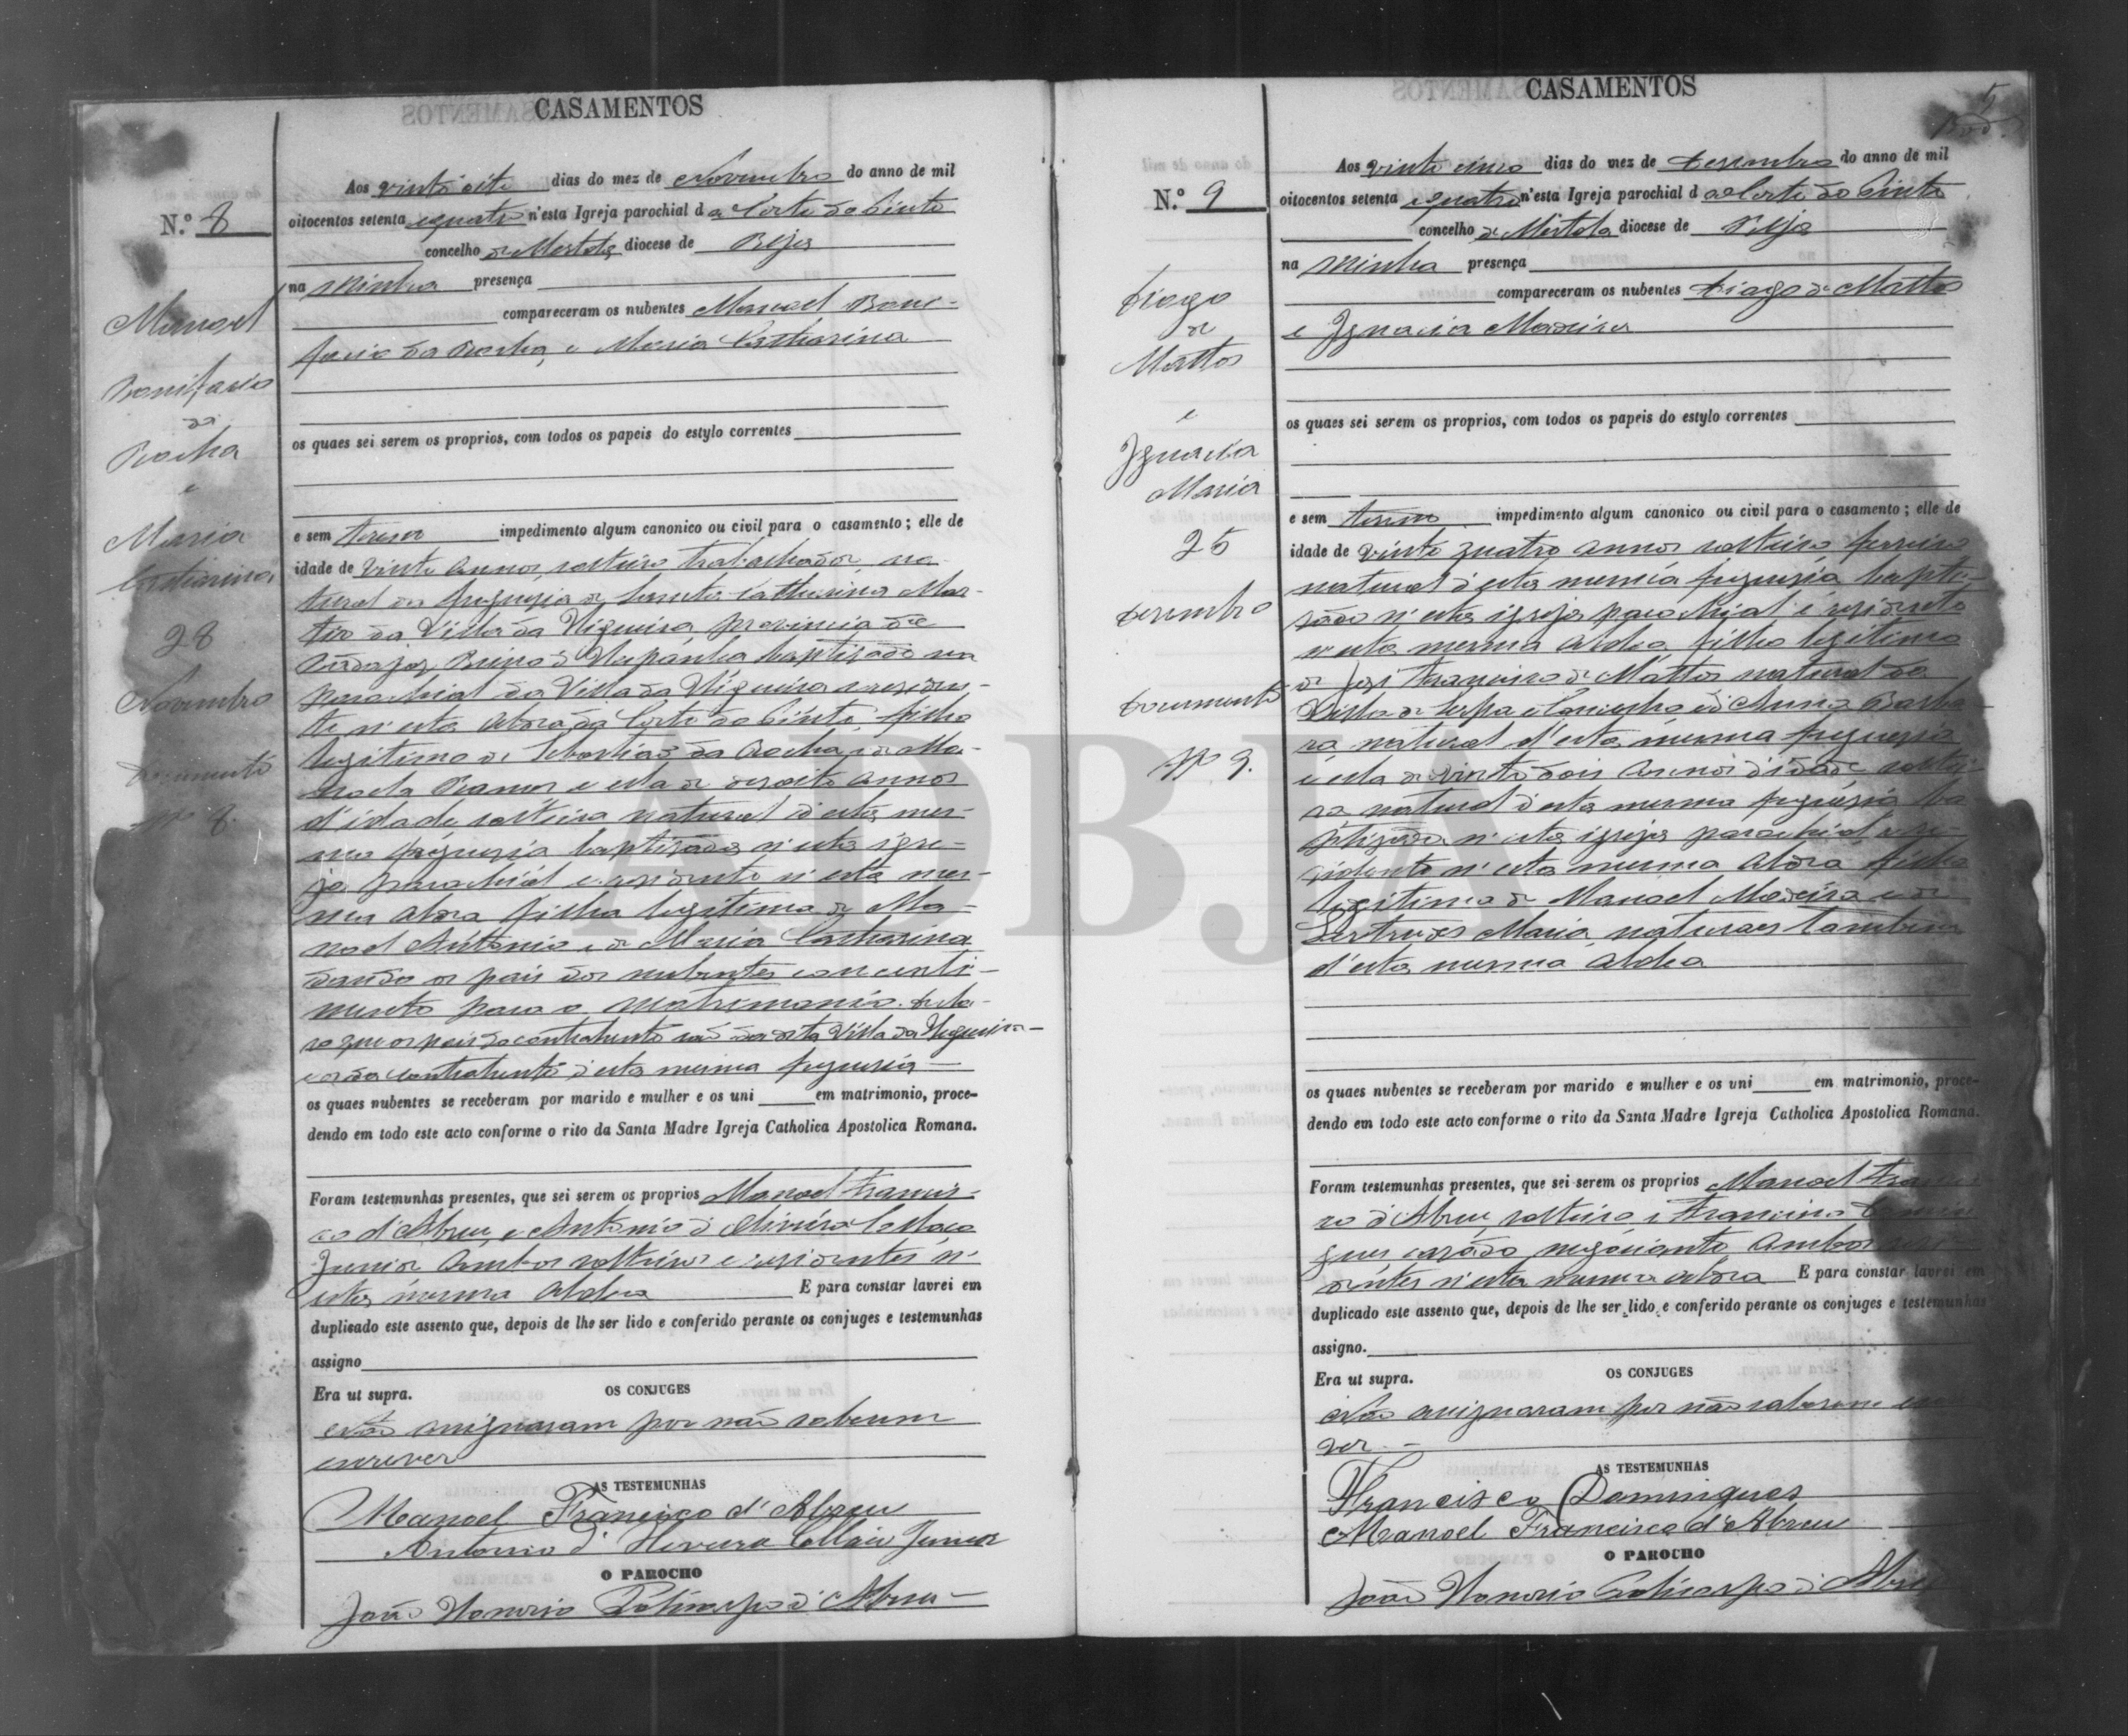 CASAMENTOS
N.º 8
Manoel
Bonifacio
da
Rocha
e
Maria
Catharina
28
Novembro
Documento
Nº 8.
Aos vinte oito dias do mez de Novembro do anno de mil
oitocentos setenta e quatro n'esta Igreja parochial d a Corte do Pinto
concelho de Mertola diocese de Beja
na minha presença
compareceram os nubentes Manoel Boni-
facio da Rocha, e Maria Catharina
os quaes sei serem os proprios, com todos os papeis do estylo correntes
e sem terem impedimento algum canonico ou civil para o casamento; elle de
idade de vinte annos, solteiro trabalhador, na
tural da freguezia de Santa Catharina Mar-
tir da Villa da Higueira provincia de
Badajoz Reino d'Hespanha baptizado na
parochial da Villa da Higueira e residen-
te n'esta Aldea da Corte do Pinto, filho
legitimo de Sebastiao da Rocha, e de Ma-
noela Ramos e ella de desoito annos
d'idade solteira natural d'esta mes-
ma freguezia baptizada n'esta igre-
ja parochial e residente n'esta mes-
ma Aldea filha legitima de Ma-
noel Antonio e de Maria Catharina
dando os pais dos nubentes concenti-
mento para o matrimonio. Decla-
ro que os pais do contrahente são da dita Villa da Higueira
e os da contrahente d'esta mesma freguezia
os quaes nubentes se receberam por marido e mulher e os uni em matrimonio, proce-
dendo em todo este acto conforme o rito da Santa Madre Igreja Catholica Apostolica Romana.
Foram testemunhas presentes, que sei serem os proprios Manoel Francis-
co d'Abreu, e Antonio d'Oliveira Collaço
Junior ambos solteiros e residentes n'
esta mesma Aldea E para constar lavrei em
duplicado este assento que, depois de lhe ser lido e conferido perante os conjuges e testemunhas
assigno
Era ut supra. OS CONJUGES
Não assignaram por não saberem
escrever
AS TESTEMUNHAS
Manoel Francisco d'Abreu
Antonio d'Oliveira Collaço Junior
O PAROCHO
João Honorio Policarpo d'Abreu
CASAMENTOS
5
N.º 9
Diogo
de
Mattos
e
Ignacia
Maria
25
Dezembro
Documento
Nº 9.
Aos vinte cinco dias do mez de Dezembro do anno de mil
oitocentos setenta e quatro n'esta Igreja parochial d a Corte do Pinto
concelho de Mertola diocese de Beja
na minha presença
compareceram os nubentes Diogo de Mattos
e Ignacia Madeira
os quaes sei serem os proprios, com todos os papeis do estylo correntes
e sem terem impedimento algum canonico ou civil para o casamento; elle de
idade de vinte quatro annos solteiro ferreiro
natural d'esta mesma freguezia bapti-
zado n'esta igreja parochial e residente
n'esta mesma Aldea filho legitimo
de José Francisco de Mattos natural da
Villa de Serpa e e d'Anna Barba
ra natural d'esta mesma freguezia
e ella de vinte dois annos d'idade soltei
ra natural d'esta mesma freguezia ba
ptizada n'esta igreja parochial e re
zidente n'esta mesma Aldea filha
legitima de Manoel Madeira e de
Gertrudes Maria naturaes tambem
d'esta mesma Aldea
os quaes nubentes se receberam por marido e mulher e os uni em matrimonio, proce-
dendo em todo este acto conforme o rito da Santa Madre Igreja Catholica Apostolica Romana.
Foram testemunhas presentes, que sei serem os proprios Manoel Francis
co d'Abreu, solteiro e Francisco Domin
gues casado negociante ambos resi-
dentes n'esta mesma Aldea E para constar lavrei em
duplicado este assento que, depois de lhe ser lido e conferido perante os conjuges e testemunhas
assigno.
Era ut supra. OS CONJUGES
Não assignaram por não saberem escre
ver
AS TESTEMUNHAS
Francisco Domingues
Manoel Francisco d'Abreu
O PAROCHO
João Honorio Policarpo d'Abreu
ADBJA